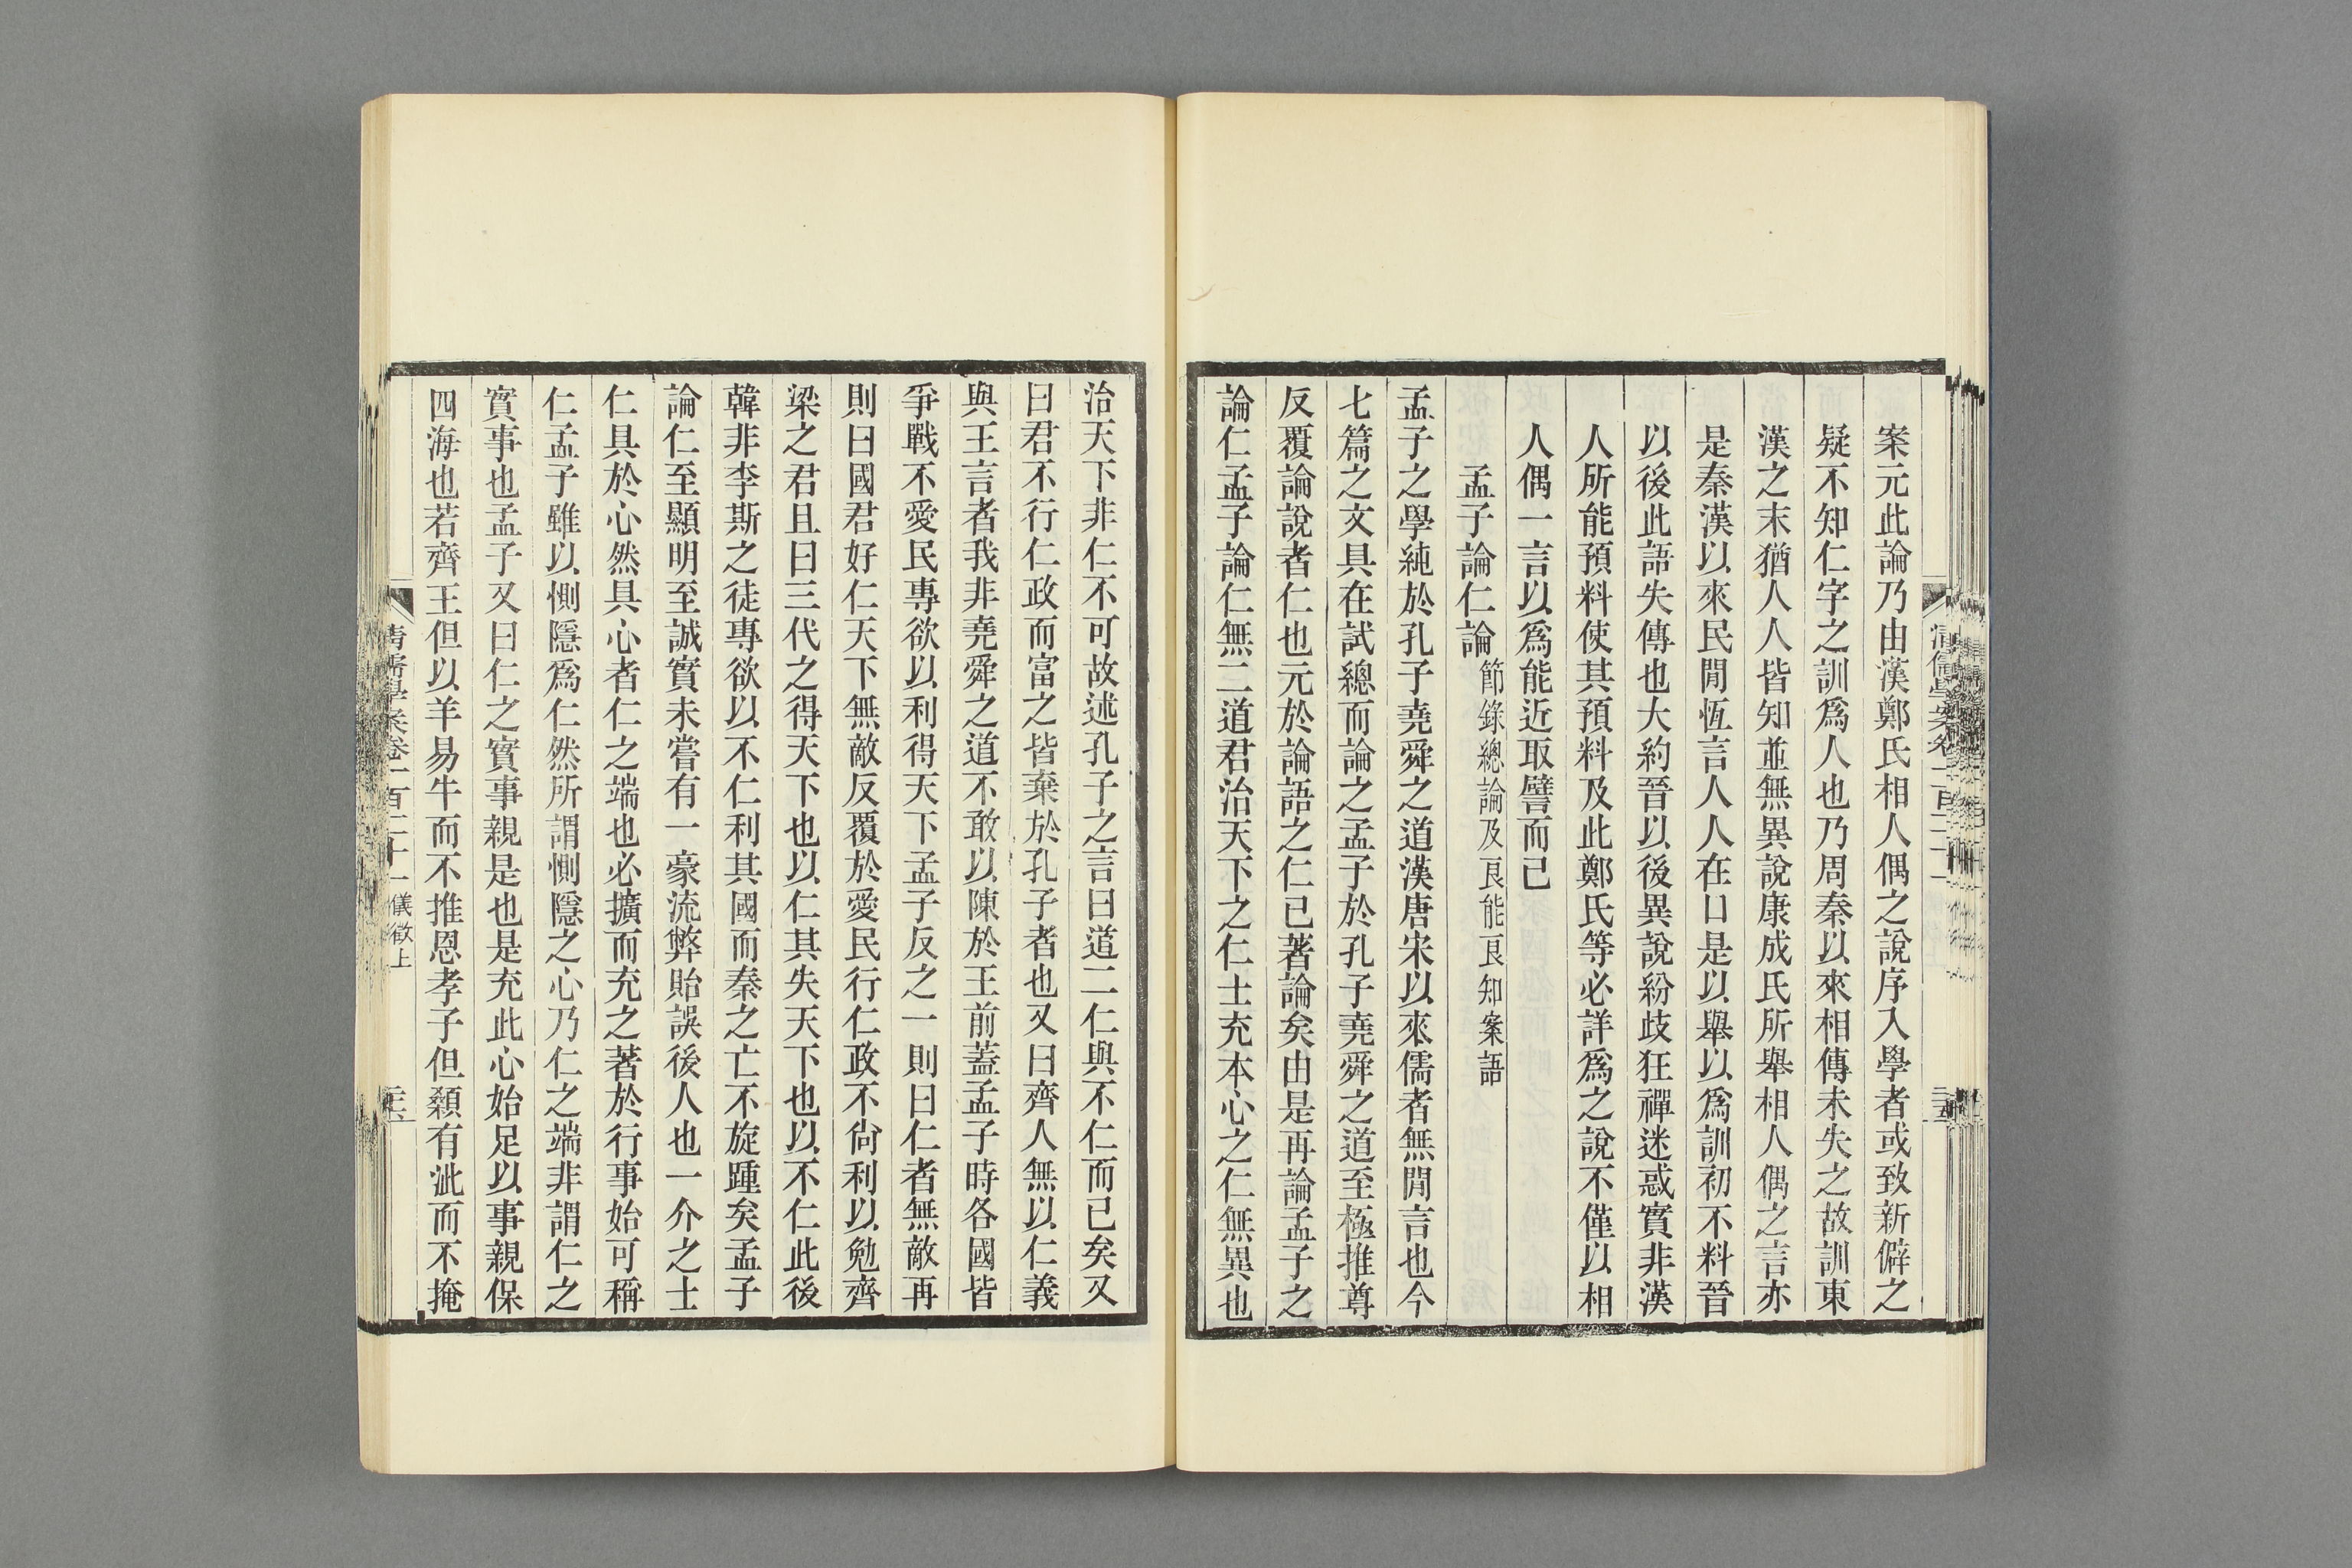 案元此論乃由漢鄭氏相人偶之說序入學者或致新僻之
疑不知仁字之訓爲人也乃周秦以來相傳未失之故訓東
漢之末猶人人皆知並無異說康成氏所舉相人偶之言亦
是秦漢以來民閒恆言人人在口是以舉以爲訓初不料晉
以後此語失傳也大約晉以後異說紛歧狂禪迷惑實非漢
人所能預料使其預料及此鄭氏等必詳爲之說不僅以相
人偶一言以爲能近取譬而已
孟子論仁論節錄總論及良能良知案語
孟子之學純於孔子堯舜之道漢唐宋以來儒者無閒言也今
七篇之文具在試總而論之孟子於孔子堯舜之道至極推尊
反覆論說者仁也元於論語之仁已著論矣由是再論孟子之
論仁孟子論仁無二道君治天下之仁士充本心之仁無異也
治天下非仁不可故述孔子之言曰道二仁與不仁而已矣又
曰君不行仁政而富之皆棄於孔子者也又曰齊人無以仁義
與王言者我非堯舜之道不敢以陳於王前蓋孟子時各國皆
爭戰不愛民專欲以利得天下孟子反之一則曰仁者無敵再
則曰國君好仁天下無敵反覆於愛民行仁政不尙利以勉齊
梁之君且曰三代之得天下也以仁其失天下也以不仁此後
韓非李斯之徒專欲以不仁利其國而秦之亡不旋踵矣孟子
論仁至顯明至誠實未嘗有一豪流弊貽誤後人也一介之士
仁具於心然具心者仁之端也必擴而充之著於行事始可稱
仁孟子雖以惻隱爲仁然所謂惻隱之心乃仁之端非謂仁之
實事也孟子又曰仁之實事親是也是充此心始足以事親保
四海也若齊王但以羊易牛而不推恩孝子但顙有泚而不掩
清儒學案卷一百二十一儀徵上